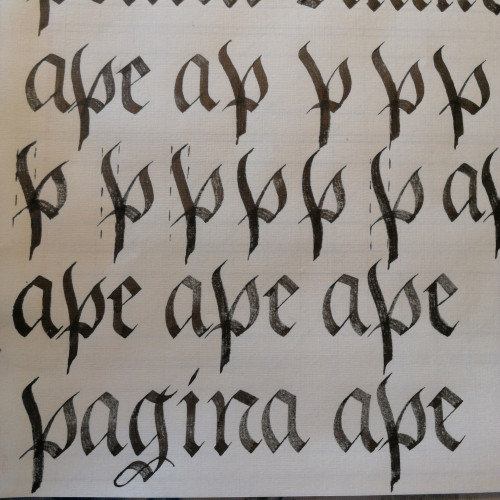 ape ap p p p
p p p p p p ap
ape ape ape
pagina ape